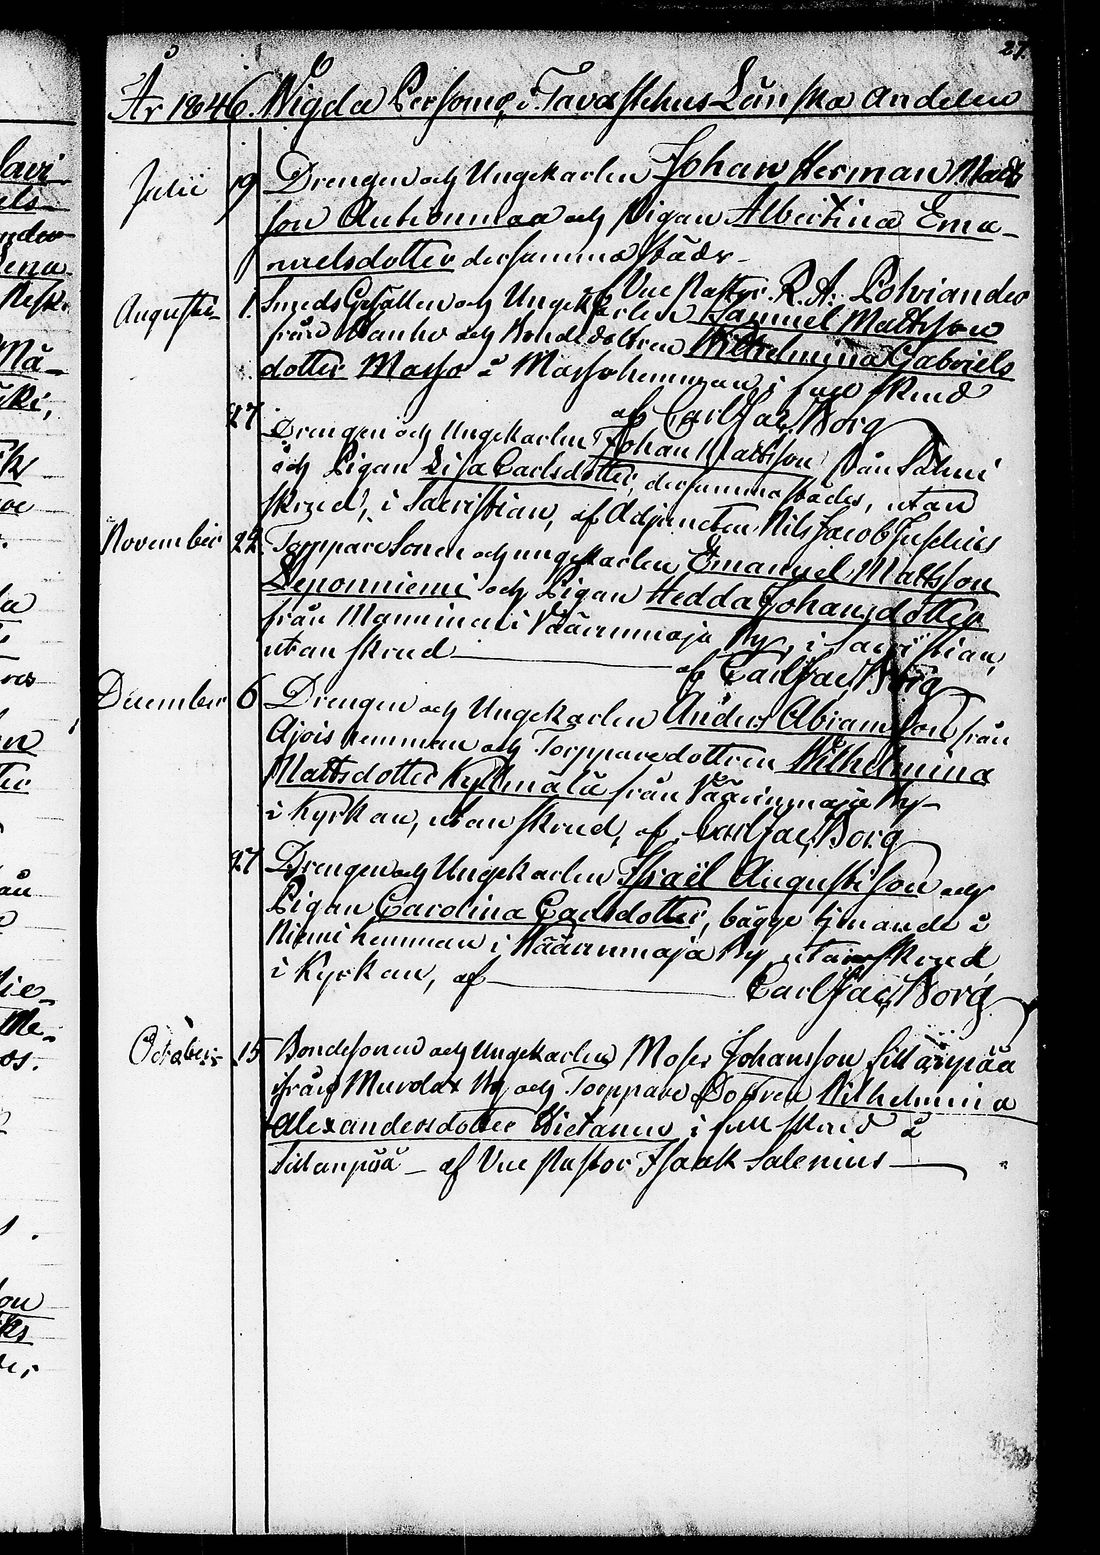 27.
År 1846. Wigda Personer i Tavastehus Länska Andelen
Julii 19 Drengen och Ungekarlen Johan Herman Matts
son och Pigan Albertina Ema-
nuelsdotter dersammastäds -
af Vice Pastor R. A. Polviander
Augusti 1. Smeds Gesällen och Ungekarlen Samuel Mattsson
från och Bondedottren Wilhelmina Gabriels
dotter Masso å Massohemman i full skrud
af Carl Jac. Borg
27 Drengen och Ungekarlen Johan Mattsson från Salmi
och Pigan Lisa Carlsdotter, dersammastädes, utan
skrud, i Sacristian, af Adjuncten Nils Jacob
November 22. Torppare Sonen och ungekarlen Emanuel Mattsson
Leponniemi och Pigan Hedda Johansdotter
från i Väärinmaja By, i Sacristian,
utan skrud af Carl Jac. Borg
December 6 Drengen och Ungekarlen Anders Abramsson från
Ajois hemman och Torpparedottren Wilhelmina
Mattsdotter Kyllmälä från Väärinmaja By
i Kyrkan, utan skrud, af Carl Jac. Borg
27 Drengen och Ungekarlen Israël Augustsson och
Pigan Carolina Carlsdotter, bägge tjenande å
Niemi hemman i Väärinmaja By utan skrud
i Kyrkan, af Carl Jac. Borg
October 15 Bondesonen och Ungekarlen Moses Johansson Sillanpää
från By och Torppare Dottren Wilhelmina
Alexandersdotter Wietanen i full skrud å
Sillanpää - af Vice Pastor Isaak Salenius